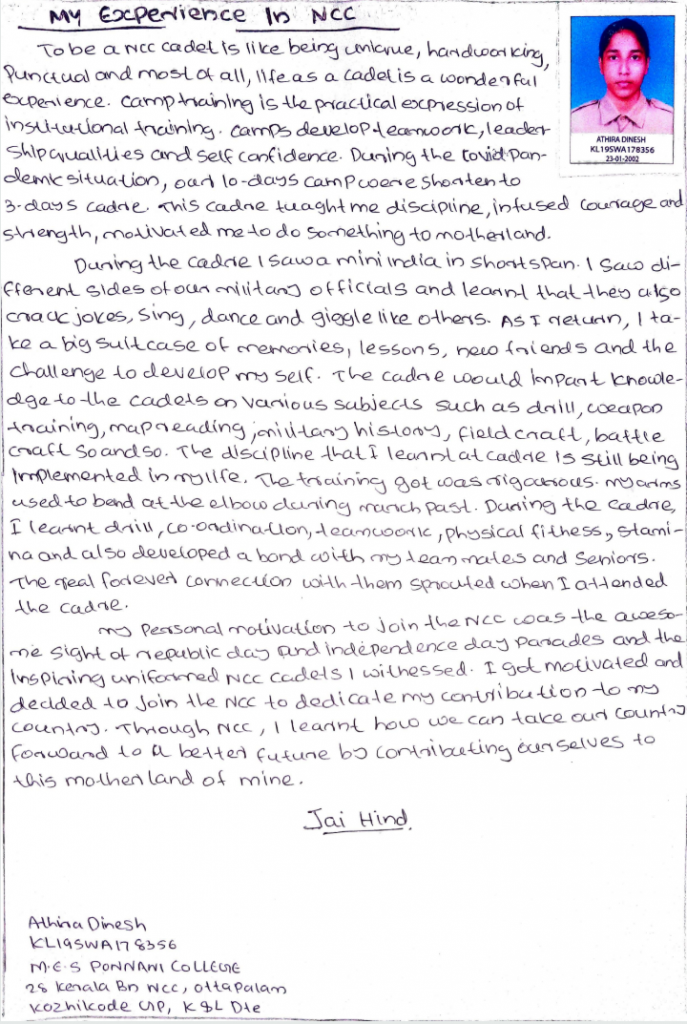 My Experience In NCC
To be a NCC cadet is like being unique, hardworking,
Punctual and most of all, life as a cadet is a wonderful
experience. Camp training is the practical expression of
institutional training. Camps develop teamwork, leader
ship qualities and self confidence. During the Covid Pan-
demic situation, our 10-days camp were shorten to
3-days cadre. This cadre tuaght me discipline, infused courage and
strength, motivated me to do something to motherland.
During the cadre I saw a mini india in short span. I saw di-
fferent sides of our military officials and learnt that they also
crack jokes, Sing, dance and giggle like others. As I return, I ta-
ke a big suitcase of memories, lessons, new friends and the
challenge to develop my self. The cadre would impart knowle-
dge to the cadets on various subjects such as drill, weapon
training, map reading, military history, field craft, battle
craft so and so. The discipline that I learnt at cadre is still being
implemented in my life. The training got was rigarous. my arms
used to bend at the elbow during march past. During the cadre,
I learnt drill, co-ordination, teamwork, physical fitness, stami-
na and also developed a bond with my team mates and seniors.
The real forever connection with them sprouted when I attended
the cadre.
my personal motivation to join the NCC was the aweso-
me sight of republic day and independence day parades and the
inspiring uniformed NCC cadets I witnessed. I got motivated and
decided to join the NCC to dedicate my contribution to my
country. Through NCC, I learnt how we can take our country
forward to a better future by contributing ourselves to
this mother land of mine.
Jai Hind.
ATHIRA DINESH
KL19SWA178356
23-01-2002
Athira Dinesh
KL19SWA178356
M.E.S PONNANI COLLEGE
28 Kerala Bn NCC, Ottapalam
Kozhikode GP, K&L Dte